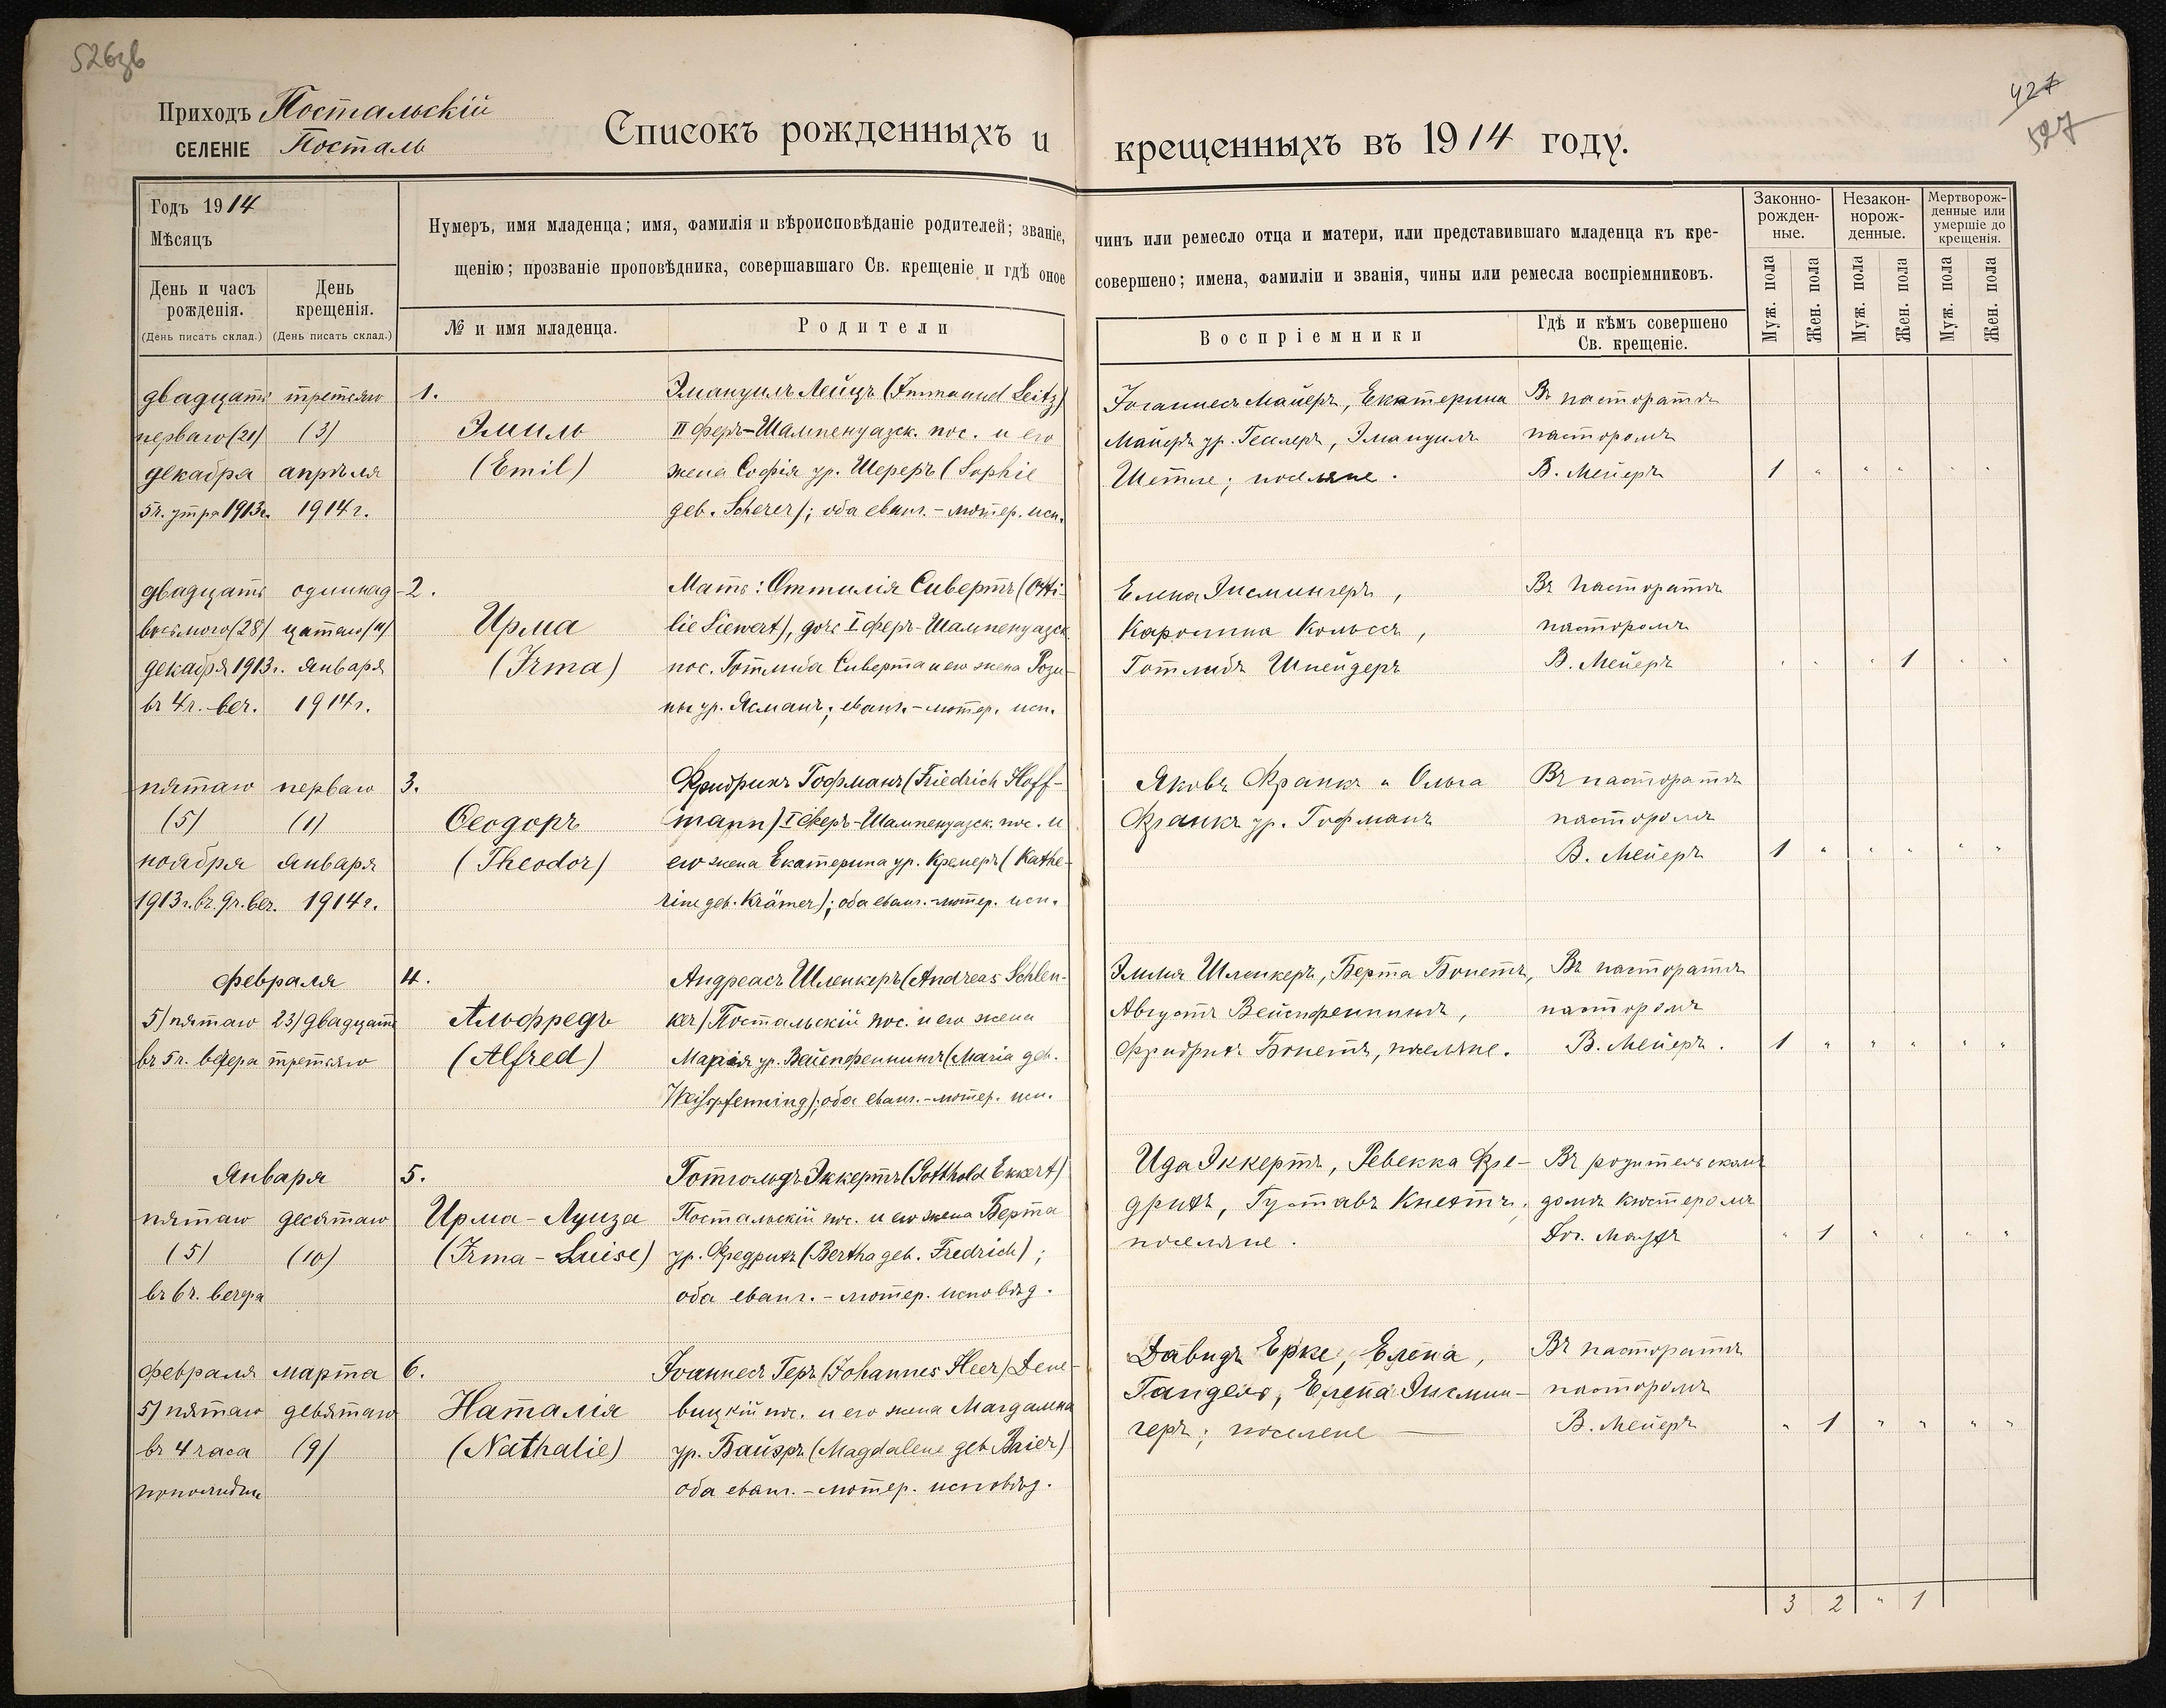 526зв
427
527
Приходъ Постальскій
СЕЛЕНІЕ Посталь
Списокъ рожденныхъ и крещенныхъ въ 1914 году.
Годъ 1914
Мѣсяцъ
День и часъ рожденія.
(День писать склад.)
День крещенія.
(День писать склад.)
Нумеръ, имя младенца; имя, фамилія и вѣроисповѣданіе родителей; званіе, чинъ или ремесло отца и матери, или представившаго младенца къ кре-
щенію; прозваніе проповѣдника, совершавшаго Св. крещеніе и гдѣ оное совершено; имена, фамиліи и званія, чины или ремесла воспріемниковъ.
№ и имя младенца.
Родители
Воспріемники
Гдѣ и кѣмъ совершено
Св. крещеніе.
Законно-
рожден-
ные.
Незакон-
норож-
денные.
Мертворож-
денные или
умершіе до
крещенія.
Муж. пола
Жен. пола
Муж. пола
Жен. пола
Муж. пола
Жен. пола
двадцать
перваго (21)
декабря
5 ч. утра 1913 г.
третьяго
(3)
апрѣля
1914 г.
1.
Эмиль
(Emil)
Эмануилъ Лейцъ (Immanuel Leitz)
II Феръ-Шампенуазск. пос. и его
жена Софія ур. Шереръ (Sophie
geb. Scherer); оба еванг.-лютер. исп.
Іоганнесъ Майеръ, Екатерина
Майеръ ур. Гешлеръ, Эмануилъ
Шетле; поселяне.
Въ пасторатѣ
пасторомъ
В. Мейеръ
1
двадцать
восьмого (28)
декабря 1913 г.
въ 4 ч. веч.
одиннад-
цатаго (11)
января
1914 г.
2.
Ирма
(Irma)
Мать: Оттилія Сивертъ (Otti-
lie Siewert), дочь I Феръ-Шампенуазск.
пос. Готлиба Сиверта и его жена Рози-
ны ур. Ясманъ; еванг.-лютер. исп.
Елена Энсмингеръ,
Каролина Кольсъ,
Готлибъ Шнейдеръ
Въ пасторатѣ
пасторомъ
В. Мейеръ
1
пятаго
(5)
ноября
1913 г. въ 9 ч. веч.
перваго
(1)
января
1914 г.
3.
Ѳеодоръ
(Theodor)
Фридрихъ Гофманъ (Friedrich Hoff-
mann) I Феръ-Шампенуазск. пос. и
его жена Екатерина ур. Кремеръ (Kathe-
rine geb. Krämer); оба еванг.-лютер. исп.
Яковъ Франкъ и Ольга
Франкъ ур. Гофманъ
Въ пасторатѣ
пасторомъ
В. Мейеръ
1
февраля
5) пятаго
въ 5 ч. вечера
23) двадцать
третьяго
4.
Альфредъ
(Alfred)
Андреасъ Шленкеръ (Andreas Schlen-
ker) Постальскій пос. и его жена
Марія ур. Вайспфеннингъ (Maria geb.
Weißpfenning); оба еванг.-лютер. исп.
Эмилія Шленкеръ, Берта Бонетъ,
Августъ Вейспфеннингъ,
Фридрихъ Бонетъ, поселяне.
Въ пасторатѣ
пасторомъ
В. Мейеръ.
1
Января
пятаго
(5)
въ 6 ч. вечера
десятаго
(10)
5.
Ирма-Луиза
(Irma-Luise)
Готгольдъ Эккертъ (Gotthold Ekkert)
Постальскій пос. и его жена Берта
ур. Фредрихъ (Bertha geb. Fredrich);
оба еванг.-лютер. исповѣд.
Ида Эккертъ, Ревекка Фре-
дрихъ, Густавъ Кнехтъ;
поселяне.
Въ родительскомъ
домѣ кистеромъ
1
февраля
5) пятаго
въ 4 часа
пополудни
марта
девятаго
(9)
6.
Наталія
(Nathalie)
Іоаннесъ Геръ (Johannes Heer) Дене-
вицкій пос. и его жена Магдалена
ур. Байэръ (Magdalene geb. Baier)
оба еванг.-лютер. исповѣд.
Давидъ Ерке, Елена,
Гандель, Елена Энсмин-
геръ; поселене
Въ пасторатѣ
пасторомъ
В. Мейеръ
1
3 2 " 1